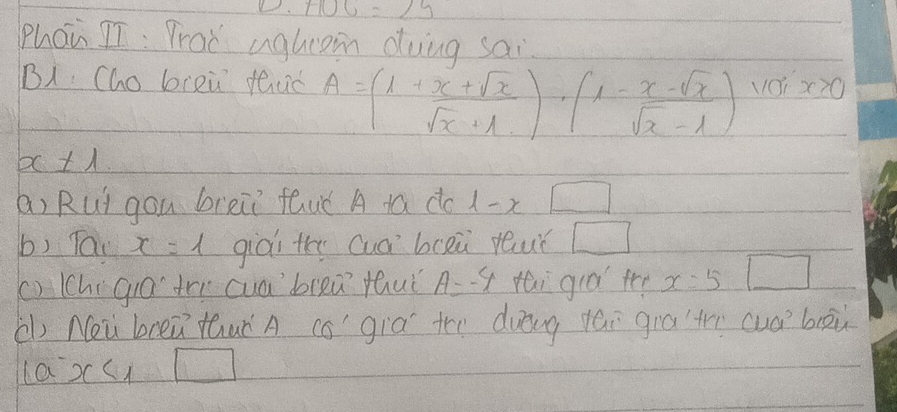 D. AOC = 25
Phần II: Trắc nghiệm đúng sai.
B1: Cho biểu thức A = (1 + x + √x / √x + 1) . (1 - x - √x / √x - 1) với x>0
x ≠ 1.
a) Rút gọn biểu thức A ta đc 1-x
b) Tại x = 1 giái trị của biểu thức
c) Khi giá trị của biểu thức A=-4 thì giá trị x=5
d) Nếu biểu thức A có giá trị dương thì giá trị của biểu
là x<1